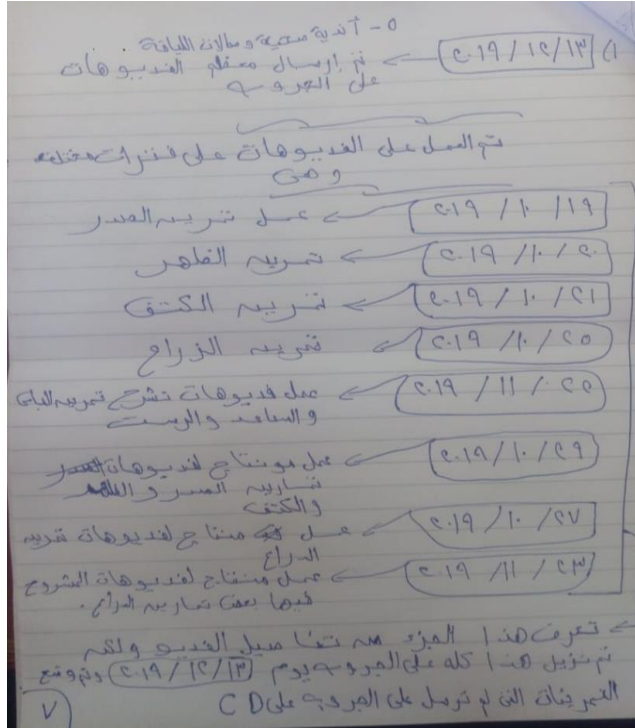 ٥ - أندية صحية وصالات اللياقة
١) ٢٠١٩ / ١٢ / ١٣ ← تم إرسال معظم الفديوهات
على الجروب
تم العمل على الفديوهات على فترات مختلفه
وهى
٢٠١٩ / ١٠ / ١٩ ← عمل تمرين الصدر
٢٠١٩ / ١٠ / ٢٠ ← تمرين الظهر
٢٠١٩ / ١٠ / ٢١ ← تمرين الكتف
٢٠١٩ / ١٠ / ٢٥ ← تمرين الزراع
٢٠١٩ / ١١ / ٢٢ ← عمل فديوهات تشرح تمرين الباى
والساعد والرست
٢٠١٩ / ١٠ / ٢٩ ← عمل مونتاج لفديوهات
تمارين الصدر و
والكتف
٢٠١٩ / ١٠ / ٢٧ ← عمل منتاج لفديوهات تمرين
الدراع
٢٠١٩ / ١١ / ٢٣ ← عمل منتاج لفديوهات المشروع
فيها بعض تمارين الدراع .
← تعرف هذا الجزء من تفاصيل الفديو ولكن
تم تنزيل هذا كله على الجروب يوم ٢٠١٩ / ١٢ / ١٣ وتم وضع
التمرينات التى لم ترسل على الجروب على CD
٧